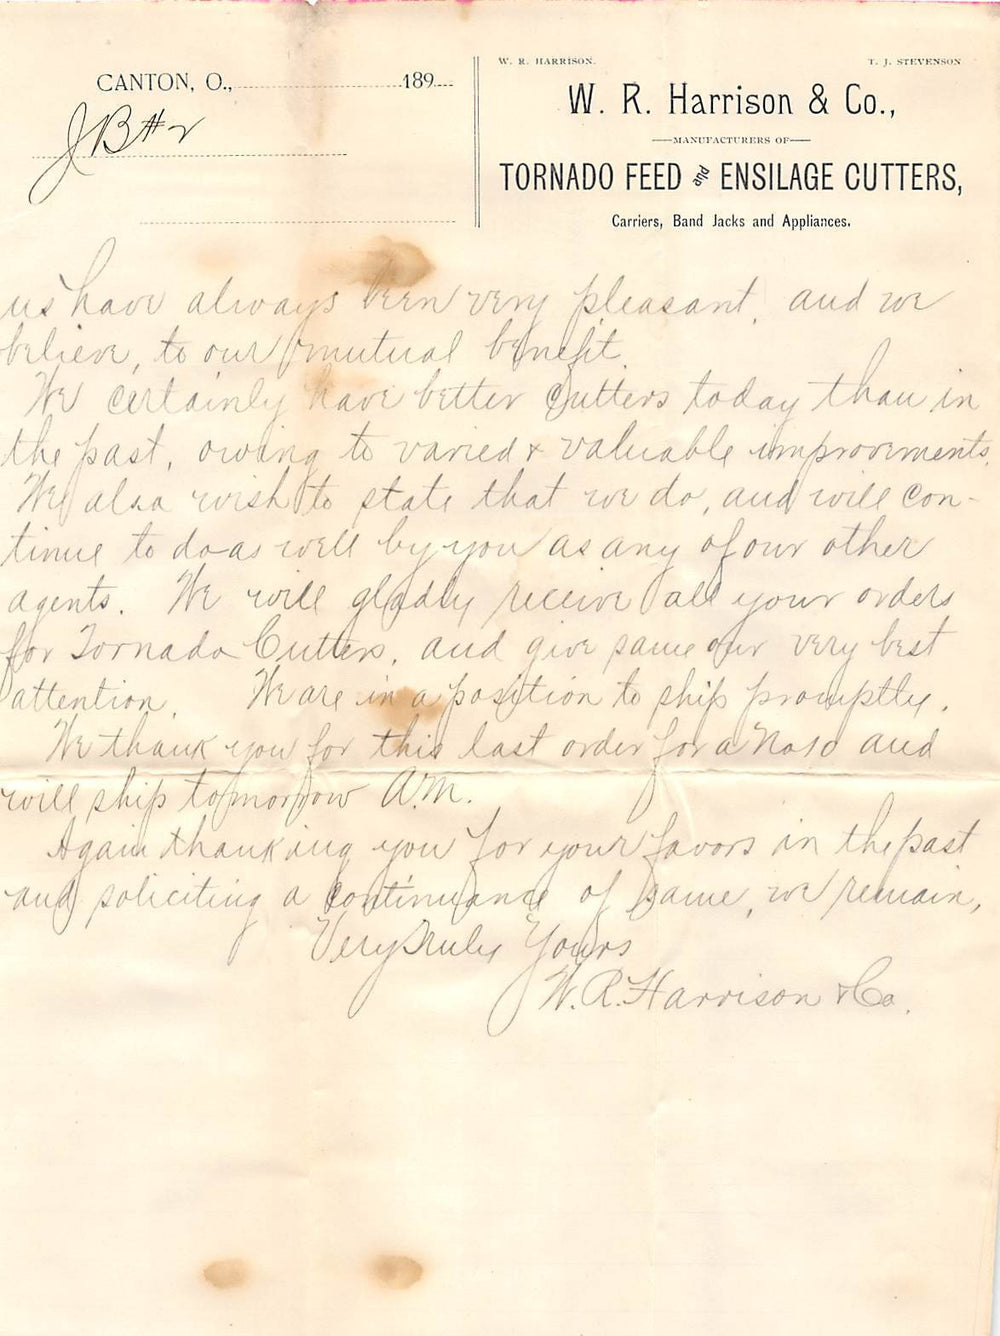 W. R. HARRISON. T. J. STEVENSON
CANTON, O., 189
W. R. Harrison & Co.,
MANUFACTURERS OF
TORNADO FEED and ENSILAGE CUTTERS,
Carriers, Band Jacks and Appliances.
J B #2
us have always been very pleasant, and we
believe, to our mutual benefit.
We certainly have better Cutters today than in
the past, owing to varied & valuable improvements.
We also wish to state that we do, and will con-
tinue to do as well by you as any of our other
agents. We will gladly receive all your orders
for Tornado Cutters, and give same our very best
attention. We are in a position to ship promptly.
We thank you for this last order for a No and
will ship tomorrow A.M.
Again thanking you for your favors in the past
and soliciting a continuance of same, we remain,
Very Truly Yours
W. R. Harrison & Co.